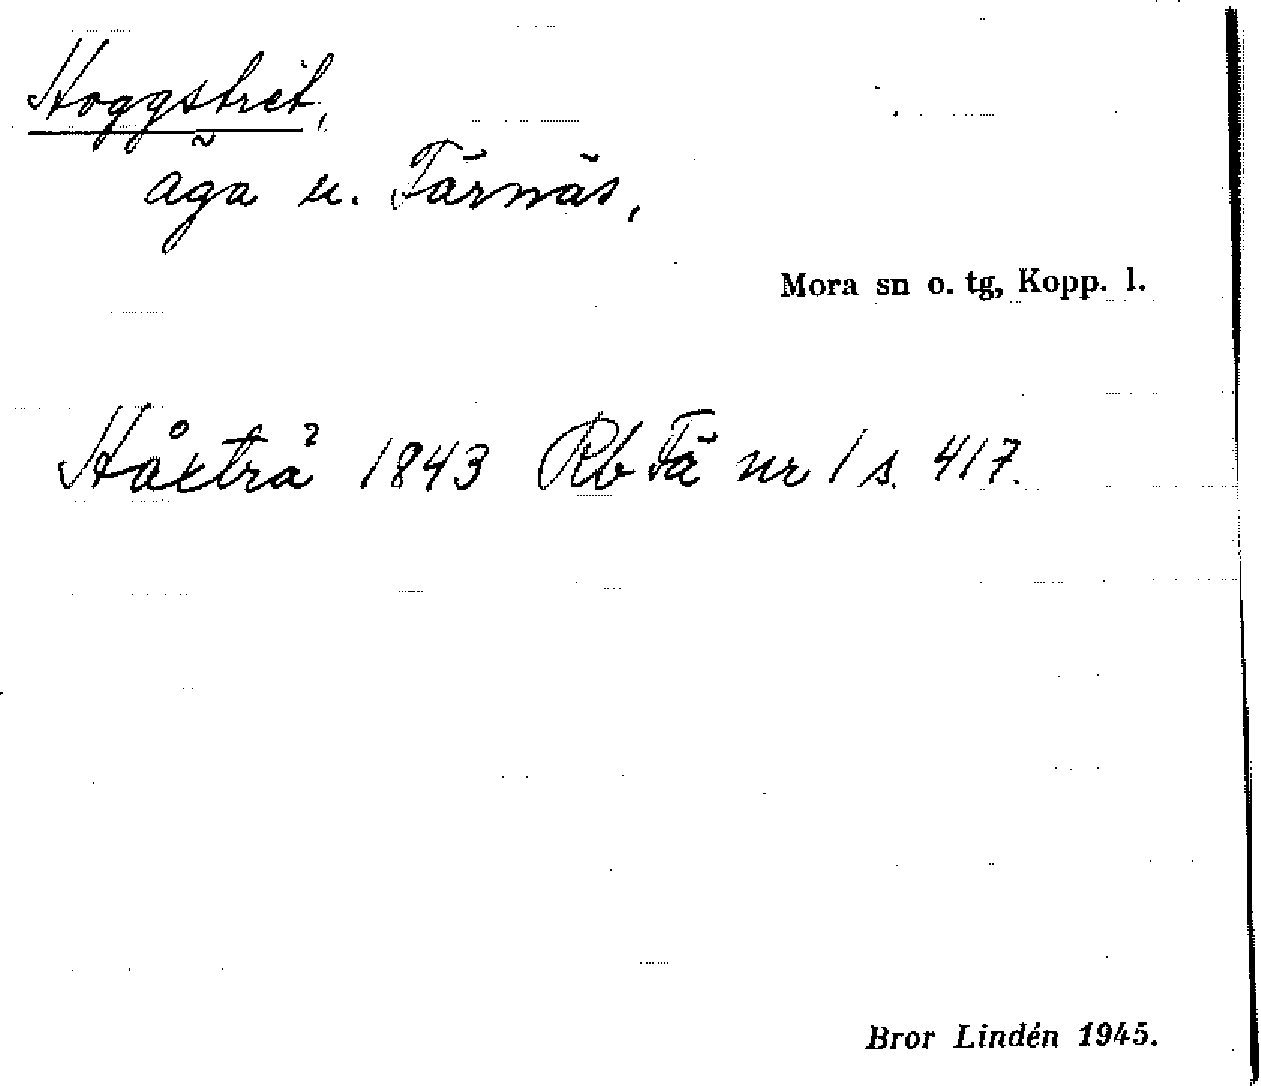 Hoggstret,
äga u. Färnäs,
Mora sn o. tg, Kopp. l.
Håxträ 1843 Rb Fä nr 1 s. 417.
Bror Lindén 1945.